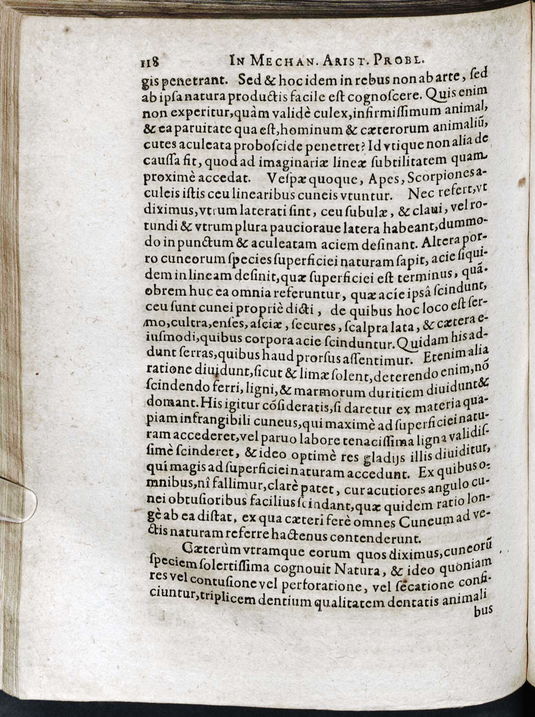 118 IN MECHAN. ARIST. PROBL.
gis penetrant. Sed & hoc idem in rebus non ab arte, ſed
ab ipſa natura productis facile eſt cognoſcere. Quis enim
non experitur, quàm validè culex, infirmiſſimum animal,
& ea paruitate qua eſt, hominum & cæterorum animaliũ,
cutes aculeata proboſcide penetret? Id vtique non alia de
cauſſa fit, quod ad imaginariæ lineæ ſubtilitatem quam
proximè accedat. Veſpæ quoque, Apes, Scorpiones a-
culeis iſtis ceu linearibus cuneis vtuntur. Nec refert, vt
diximus, vtrum laterati ſint, ceu ſubulæ, & claui, vel ro-
tundi & vtrum plura paucioraue latera habeant, dummo-
do in punctum & aculeatam aciem deſinant. Altera por-
ro cuneorum ſpecies ſuperficiei naturam ſapit, acie ſiqui-
dem in lineam deſinit, quæ ſuperficiei eſt terminus, quã-
obrem huc ea omnia referuntur, quæ acie ipsâ ſcindunt,
ceu ſunt cunei propriè dicti, de quibus hoc loco eſt ſer-
mo, cultra, enſes, aſciæ, ſecures, ſcalpra lata, & cætera e-
iuſmodi, quibus corpora acie ſcinduntur. Quidam his ad-
dunt ſerras, quibus haud prorſus aſſentimur. Etenim alia
ratione diuidunt, ſicut & limæ ſolent, deterendo enim, nõ
ſcindendo ferri, ligni, & marmorum duritiem diuidunt &
domant. His igitur cõſideratis, ſi daretur ex materia qua-
piam infrangibili cuneus, qui maximè ad ſuperficiei natu-
ram accederet, vel paruo labore tenaciſſima ligna validiſ-
ſimè ſcinderet, & ideo optimè res gladijs illis diuiditur,
qui magis ad ſuperficiei naturam accedunt. Ex quibus o-
mnibus, nî fallimur, clarè patet, cur acutiores angulo cu-
nei obtuſioribus facilius ſcindant, quæ quidem ratio lon-
gè ab ea diſtat, ex qua cæteri ferè omnes Cuneum ad ve-
ctis naturam referre hactenus contenderunt.
Cæterùm vtramque eorum quos diximus, cuneorũ
ſpeciem ſolertiſſima cognouit Natura, & ideo quoniam
res vel contuſione vel perforatione, vel ſecatione confi-
ciuntur, triplicem dentium qualitatem dentatis animali
bus